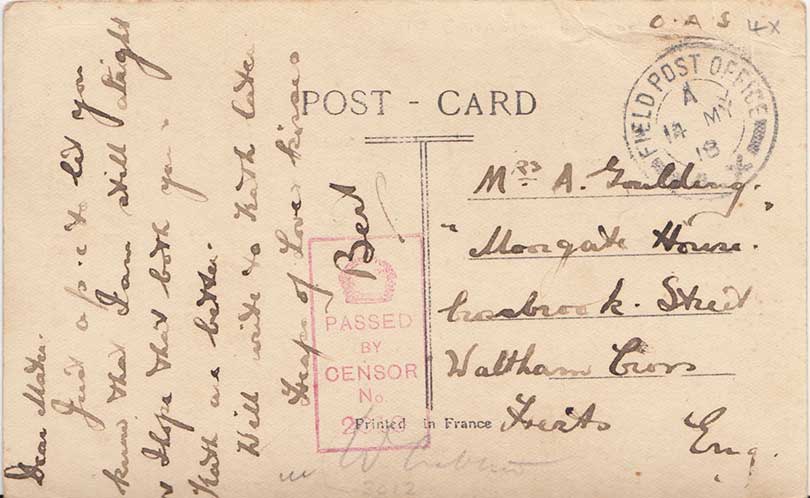 O.A.S
POST - CARD
FIELD POST OFFICE
A
14 MY
18
Dear Mater.
Just a p.c to let you
know that I am still alright
& I hope that both you &
Kath are better.
Will write to Kath later
Heaps of Love & kisses
Bert
Mrs A. Goulding.
"Moorgate House."
Crossbrook. Street
Waltham Cross
Herts
Eng.
PASSED
BY
CENSOR
No.
Printed in France